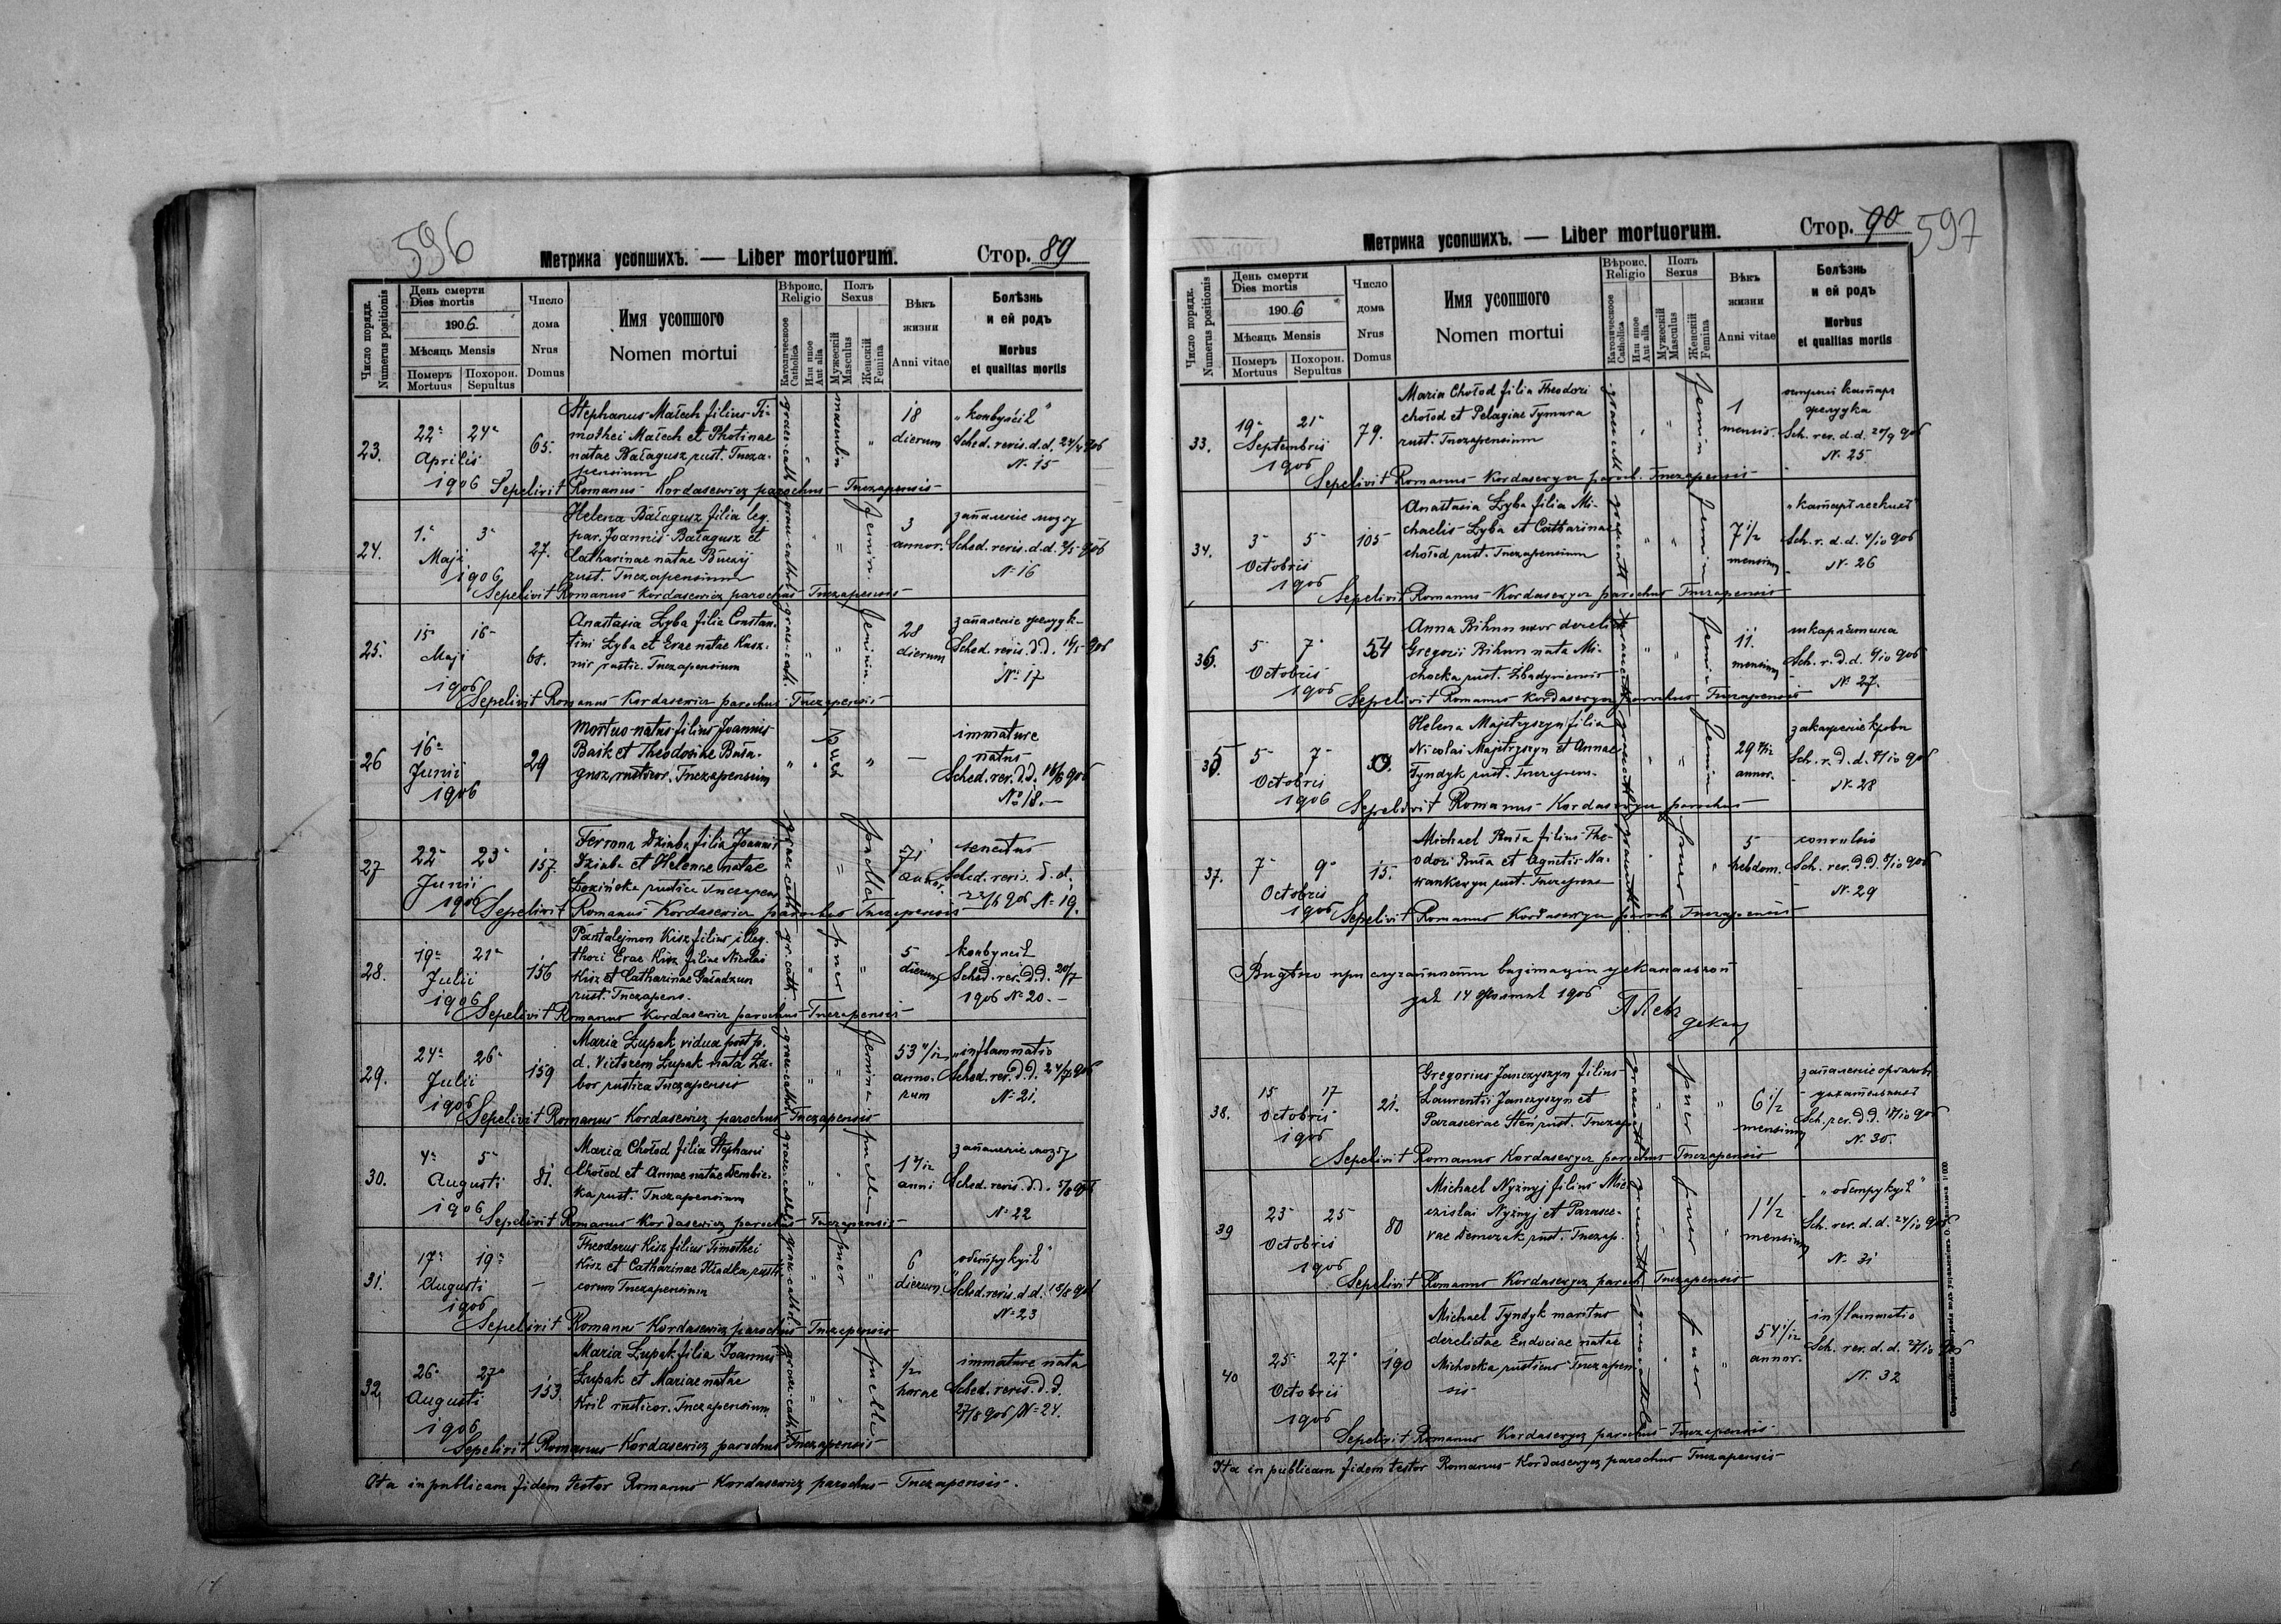 596
Метрика усопшихъ. — Liber mortuorum.
Стор. 89
Число порядк.
Numerus positionis
День смерти
Dies mortis
1906
Мѣсяць Mensis
Померъ
Mortuus
Похорон.
Sepultus
Число
дома
Nrus
Domus
Имя усопшого
Nomen mortui
Вѣроис.
Religio
Католическое
Catholica
Или иное
Aut alia
Полъ
Sexus
Мужескій
Masculus
Женскій
Femina
Вѣкъ
жизни
Anni vitae
Болѣзнь
и ей родъ
Morbus
et qualitas mortis
23.
22 24
Aprilis
1906
65.
Stephanus Małech filius Ti-
mothei Małech et Photinae
natae Bałagusz rust. Tucza-
pensium
graec. cath.
masculin
18
dierum
Sched. revis. d. d. 24/4 906
N. 15
Sepelivit Romanus Kordasewicz parochus Tuczapensis
24.
1. 3
Maji
1906
27.
Helena Bałagusz filia leg.
par. Joannis Bałagusz et
Catharinae natae
rust. Tuczapensium
graeco-cathol.
femin.
3
annor.
запаленіе мозгу
Sched. revis. d. d. 2/5 906
N. 16
Sepelivit Romanus Kordasewicz parochus Tuczapensis
25.
15 16
Maji
1906
68.
Anastasia Łyba filia Constan-
tini Łyba et Evae natae Kusz-
nir rustic. Tuczapensium
graec.-cath.
feminin.
28
dierum
запаленіе
Sched. revis. d. d. 16/5 906
N. 17
Sepelivit Romanus Kordasewicz parochus Tuczapensis
26
16
Junii
1906
29
Mortuo-natus filius Joannis
Baik et Theodosiae Bała-
gusz, rusticor. Tuczapensium
" " puer "
—
immature
natus
Sched. rev. d. d. 16/6 906
No 18. —
27
22 23
Junii
1906
157.
Ferrona Dziuba filia Joannis
Dziuba et Helenae natae
Łozińska rustica Tuczapens.
graec. cath.
puella
71
annor.
senectus
Sched. revis. d. d.
22/6 906 N. 19.
Sepelivit Romanus Kordasewicz parochus Tuczapensis
28.
19 21
Julii
1906
156
Pantalejmon Kisz filius illeg.
thori Evae Kisz filiae Nicolai
Kisz et Catharinae Gaładzun
rust. Tuczapens.
gr. cath.
puer
5
dierum
Sched. rev. d. d. 20/7
1906 N. 20. —
Sepelivit Romanus Kordasewicz parochus Tuczapensis
29.
24 26
Julii
1906
159
Maria Łupak vidua post p.
d. Victorem Łupak nata Za-
bor rustica Tuczapensis
graec.-cathol.
femina
53
anno-
rum
inflammatio
Sched. rev. d. d. 24/7 906
N. 21.
Sepelivit Romanus Kordasewicz parochus Tuczapensis
30.
4 5
Augusti
1906
81.
Maria Chołod filia Stephani
Chołod et Annae natae Dembic-
ka rust. Tuczapensium
graec.-cathol.
puella
1
anni
запаленіе мозгу
Sched. revis. d. d. 5/8 906
N. 22
Sepelivit Romanus Kordasewicz parochus Tuczapensis
31.
17 19
Augusti
1906
—
Theodorus Kisz filius Timothei
Kisz et Catharinae Hładka rusti-
corum Tuczapensium
graec.-cathol.
puer
6
dierum
Sched. revis. d. d. 18/8 906
N. 23
Sepelivit Romanus Kordasewicz parochus Tuczapensis
32
26 27
Augusti
1906
153.
Maria Łupak filia Joannis
Łupak et Mariae natae
Kril rusticor. Tuczapensium
graec.-cathol.
puella
1/2
horae
immature nata
Sched. revis. d. d.
27/8 906 N. 24.
Sepelivit Romanus Kordasewicz parochus Tuczapensis
Ita in publicam fidem testor Romanus Kordasewicz parochus Tuczapensis.
597
Метрика усопшихъ. — Liber mortuorum.
Стор. 90
Число порядк.
Numerus positionis
День смерти
Dies mortis
1906
Мѣсяць Mensis
Померъ
Mortuus
Похорон.
Sepultus
Число
дома
Nrus
Domus
Имя усопшого
Nomen mortui
Вѣроис.
Religio
Католическоое
Catholica
Или иное
Aut alia
Полъ
Sexus
Мужескій
Masculus
Женскій
Femina
Вѣкъ
жизни
Anni vitae
Болѣзнь
и ей родъ
Morbus
et qualitas mortis
33.
19 21
Septembris
1906
79.
Maria Chołod filia Theodori
Chołod et Pelagiae Tymura
rust. Tuczapensium
femin
1
mensis.
Sch. rev. d. d. 20/9 906
N. 25
Sepelivit Romanus Kordasewycz paroch. Tuczapensis
34.
3 5
Octobris
1906
105
Anastasia Łyba filia Mi-
chaelis Łyba et Catharinae
Chołod rust. Tuczapensium
femin
7 1/2
mensium
Sch. r. d. d. 4/10 906
N. 26
Sepelivit Romanus Kordasewycz parochus Tuczapensis
36.
5 7
Octobris
1906
54
Anna Bihun uxor derelict.
Gregorii Bihun nata Mi-
chocka rust.
femin
11
mensium
шкарлятина
Sch. r. d. d. 6/10 906
N. 27.
Sepelivit Romanus Kordasewycz parochus Tuczapensis
35.
5 7
Octobris
1906
Helena Majstryszyn filia
Nicolai Majstryszyn et Annae
Tyndyk rust. Tuczapens.
femina
29
annor.
закаженіе крови
Sch. r. d. d. 6/10 906
N. 28
Sepelivit Romanus Kordasewycz parochus
37.
7 9
Octobris
1906
15.
Michael Buła filius Theo-
dori Buła et Agnetis Na-
wankewycz rust. Tuczapens
puer
5
hebdom.
convulsio
Sch. rev. d. d. 8/10 906
N. 29
Sepelivit Romanus Kordasewycz paroch. Tuczapensis
Видѣно при
14 1906
декан
38.
15 17
Octobris
1906
21.
Gregorius Janczyszyn filius
Laurentii Janczyszyn et
Parascevae Steń rust. Tuczap.
puer
6 1/2
mensium
запаленіе органовъ
Sch. rev. d. d. 906
N. 30.
Sepelivit Romanus Kordasewycz parochus Tuczapensis
39
23 25
Octobris
1906
80
Michael Nyżnyj filius Mie-
czislai Nyżnyj et Parasce-
vae Demczak rust. Tuczap.
puer
1 1/2
mensium
Sch. rev. d. d. 24/10 906
N. 31
Sepelivit Romanus Kordasewycz paroch. Tuczapensis
40
25 27
Octobris
1906
190
Michael Tyndyk maritus
derelictae Eudociae natae
Michocka rusticus Tuczapen-
sis
puer
54
annor.
inflammatio
Sch. rev. d. d. 906
N. 32
Sepelivit Romanus Kordasewycz parochus Tuczapensis
Ita in publicam fidem testor Romanus Kordasewycz parochus Tuczapensis